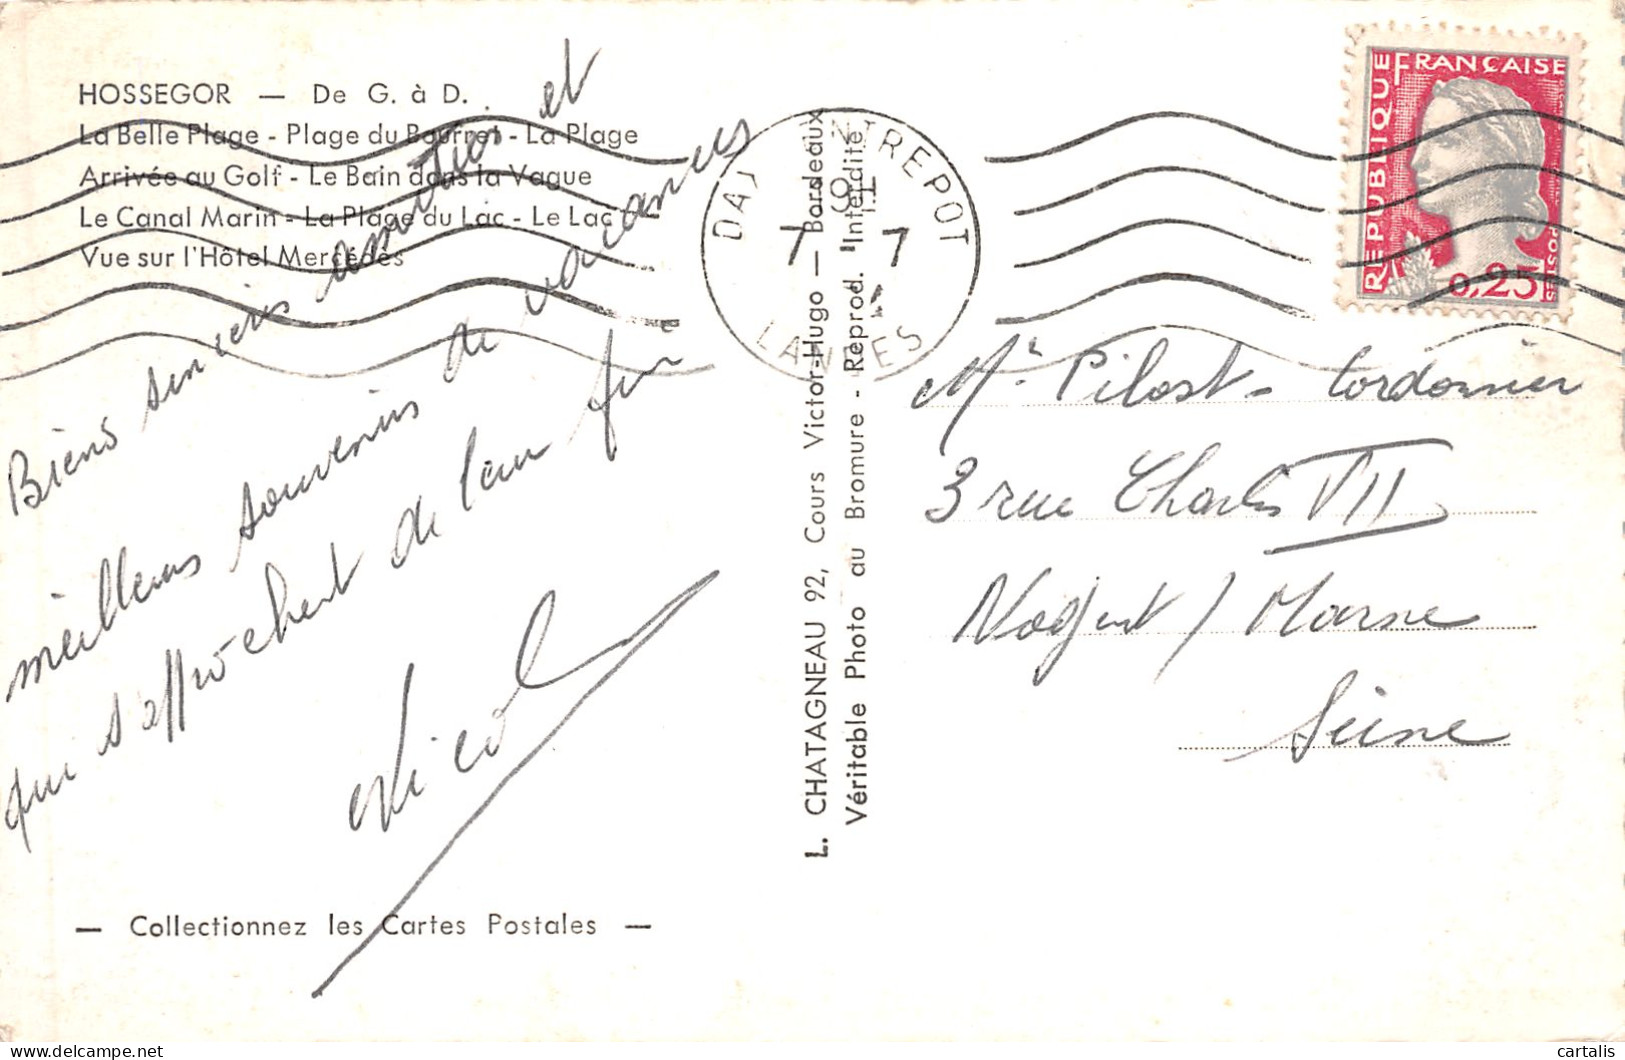 HOSSEGOR — De G. à D.
La Belle Plage - Plage du Bourret - La Plage
Arrivée au Golf - Le Bain dans la Vague
Le Canal Marin - La Plage du Lac - Le Lac
Vue sur l'Hôtel Mercédès
Biens sincères amitiés et
meilleurs souvenirs de vacances
qui s'approchent de leur fin
Nicole
— Collectionnez les Cartes Postales —
L. CHATAGNEAU 92, Cours Victor-Hugo — Bordeaux
Véritable Photo au Bromure - Reprod. Interdite
ENTREPOT
7 7
LANDES
RÉPUBLIQUE FRANÇAISE
POSTES
0,25
Mr Pilost - Cordonnier
3 rue Charles VII
Nogent / Marne
Seine
cartalis
delcampe.net